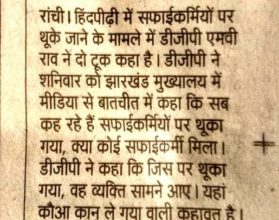 रांची। हिंदपीढ़ी में सफाईकर्मियों पर
थूके जाने के मामले में डीजीपी एमवी
राव ने दो टूक कहा है। डीजीपी ने
शनिवार को झारखंड मुख्यालय में
मीडिया से बातचीत में कहा कि सब
कह रहे हैं सफाईकर्मियों पर थूका
गया, क्या कोई सफाईकर्मी मिला।
डीजीपी ने कहा कि जिस पर थूका
गया, वह व्यक्ति सामने आए। यहां
कौआ कान ले गया वाली कहावत है।